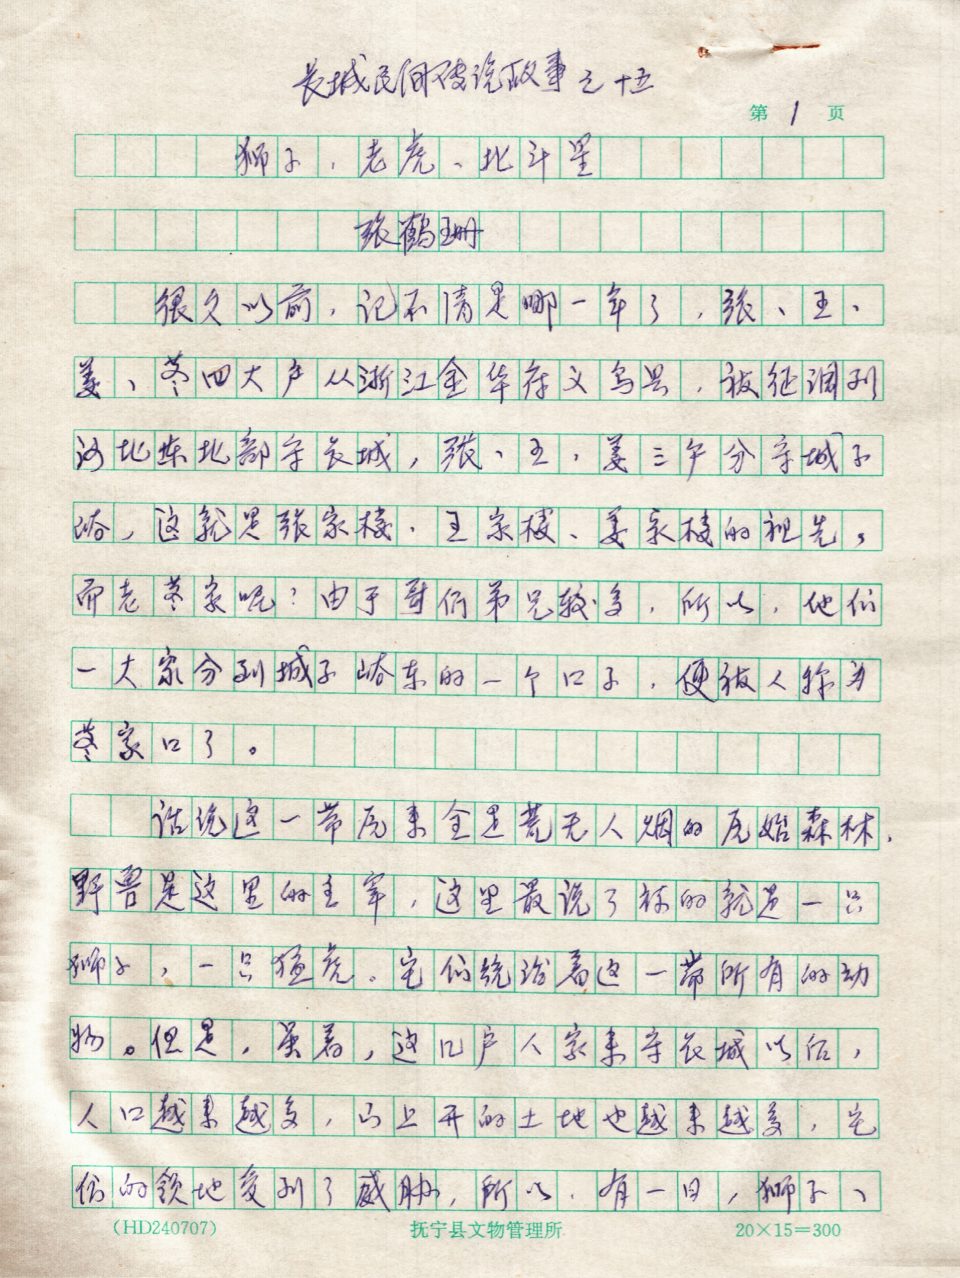 长城民间传说故事之十五
第1页
狮子、老虎、北斗星
张鹤珊
很久以前，记不清是哪一年了，张、王、
姜、苳四大户从浙江金华府义乌县，被征调到
河北东北部守长城，张、王、姜三户分守城子
峪，这就是张家楼、王家楼、姜家楼的祖先。
而老苳家呢？由于哥们弟兄较多，所以，他们
一大家分到城子峪东的一个口子，便被人称为
苳家口了。
话说这一带原来全是荒无人烟的原始森林，
野兽是这里的主宰，这里最说了算的就是一只
狮子，一只猛虎。它们统治着这一带所有的动
物。但是，虽着，这几户人家来守长城以后，
人口越来越多，山上开的土地也越来越多，它
们的领地受到了威胁，所以，有一日，狮子、
（HD240707）
抚宁县文物管理所
20×15=300